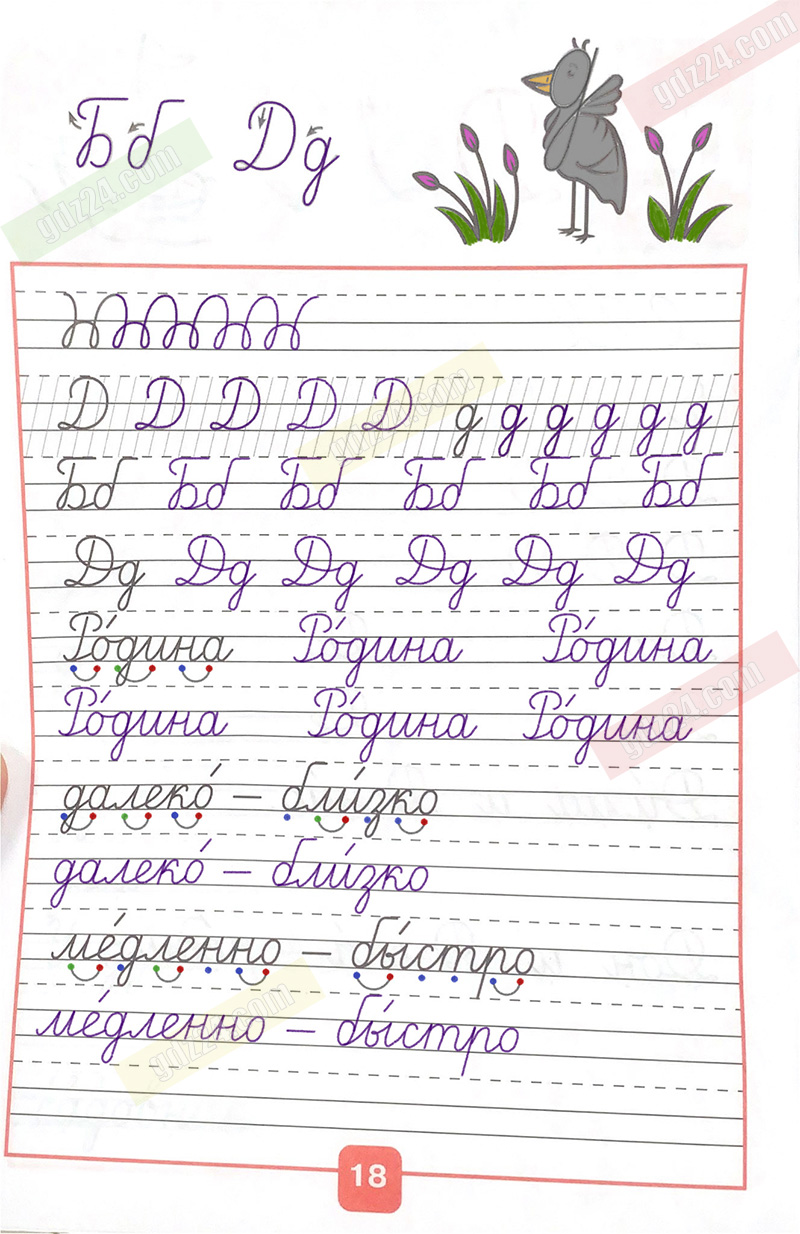 Бб Дд
gdz24.com
gdz24.com
Д Д Д Д Д д д д д д д
gdz24.com
Бб Бб Бб Бб Бб Бб
Дд Дд Дд Дд Дд Дд
Ро́дина Ро́дина Ро́дина
gdz24.com
Ро́дина Ро́дина Ро́дина
далеко́ – бли́зко
далеко́ – бли́зко
ме́дленно – бы́стро
gdz24.com
ме́дленно – бы́стро
18